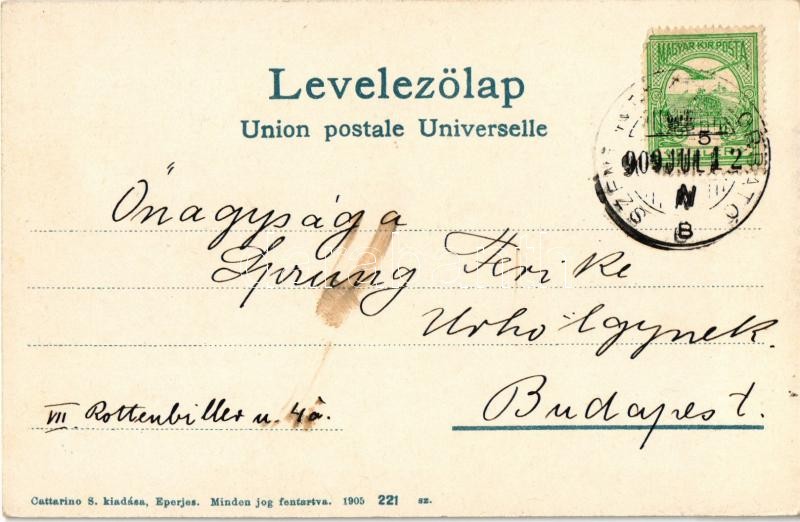 Levelezölap
Union postale Universelle
MAGYAR KIR. POSTA
5
909 JUL 12
N
B
Önagysága
Sprung Terike
Urhölgynek.
Budapest.
VII Rottenbiller u. 4a.
Cattarino S. kiadása, Eperjes. Minden jog fentartva. 1905 221 sz.